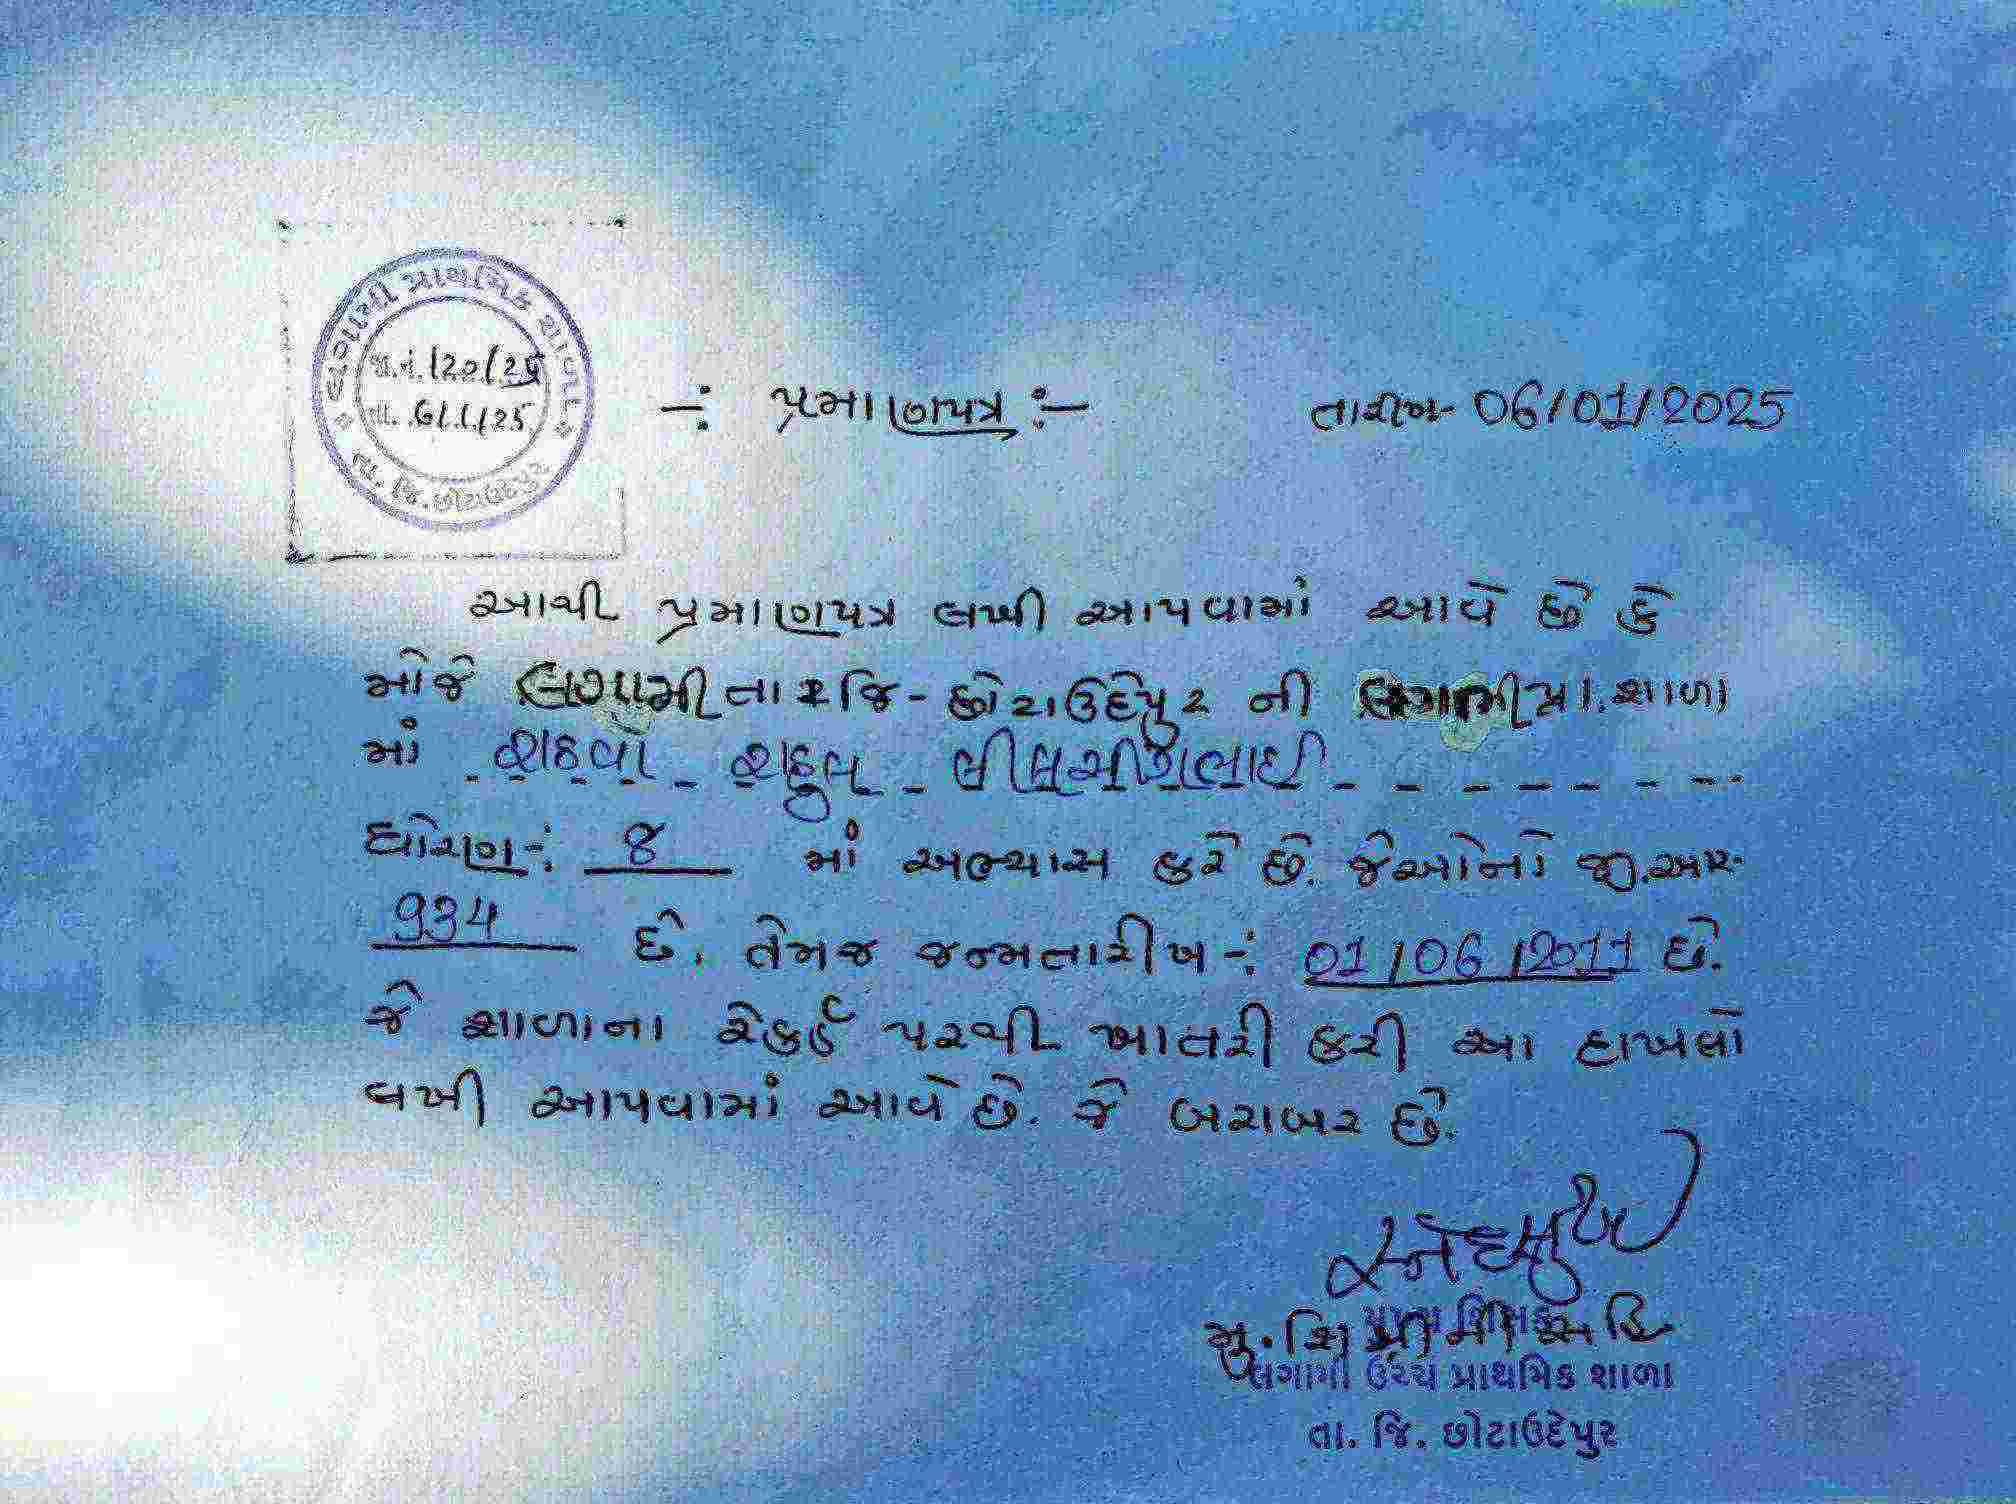 લગામી પ્રાથમિક શાળા
જા.નં. 120/25
તા. 6/1/25
તા. જિ. છોટાઉદેપુર
-: પ્રમાણપત્ર :-
તારીખ- 06/01/2025
આથી પ્રમાણપત્ર લખી આપવામાં આવે છે કે
મોજે લગામી તા ૨ જિ - છોટાઉદેપુર ની લગામી પ્રા. શાળા
માં રાઠવા રાહુલ
ધોરણ -: 8 માં અભ્યાસ કરે છે. જેઓનો જી.આર.
934 છે. તેમજ જન્મતારીખ -: 01/06/2011 છે.
જે શાળાના રેકર્ડ પરથી ખાતરી કરી આ દાખલો
લખી આપવામાં આવે છે. જે બરાબર છે.
મુ. શિ
મુખ્ય શિક્ષક
લગામી ઉચ્ચ પ્રાથમિક શાળા
તા. જિ. છોટાઉદેપુર